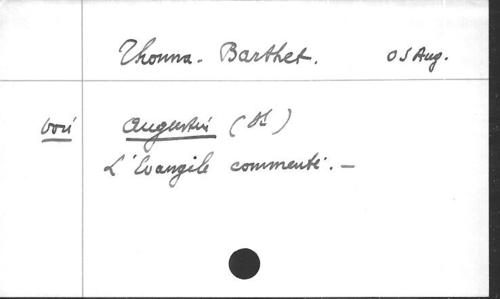 Thonna-Barthet. OS Aug.
voir Augustin (St)
L'Evangile commenté. —